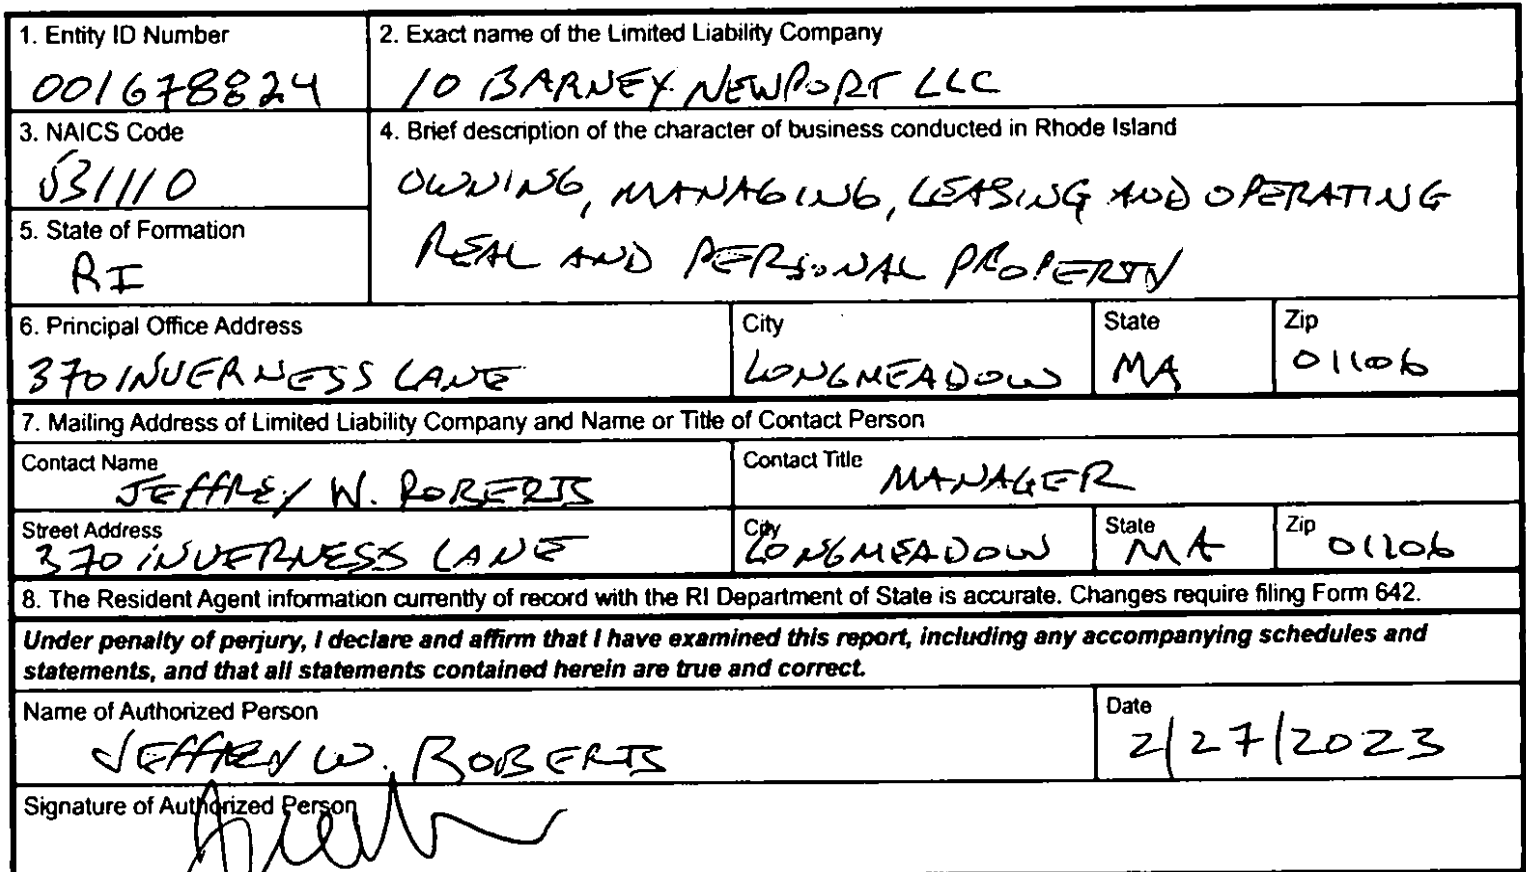 1. Entity ID Number
001678824
2. Exact name of the Limited Liability Company
10 BARNEY NEWPORT LLC
3. NAICS Code
531110
4. Brief description of the character of business conducted in Rhode Island
OWNING, MANAGING, LEASING AND OPERATING
REAL AND PERSONAL PROPERTY
5. State of Formation
RI
6. Principal Office Address
370 INVERNESS LANE
City
LONGMEADOW
State
MA
Zip
01106
7. Mailing Address of Limited Liability Company and Name or Title of Contact Person
Contact Name
JEFFREY W. ROBERTS
Contact Title
MANAGER
Street Address
370 INVERNESS LANE
City
LONGMEADOW
State
MA
Zip
01106
8. The Resident Agent information currently of record with the RI Department of State is accurate. Changes require filing Form 642.
Under penalty of perjury, I declare and affirm that I have examined this report, including any accompanying schedules and
statements, and that all statements contained herein are true and correct.
Name of Authorized Person
JEFFREY W. ROBERTS
Date
2/27/2023
Signature of Authorized Person